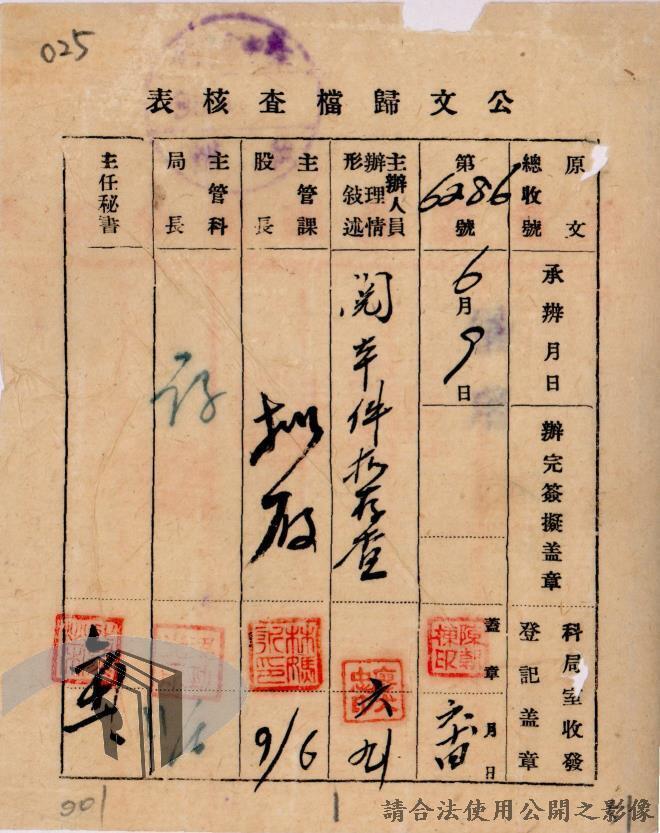 025
公文歸檔查核表
原文
總收號
第6286號
主辦人員
辦理情
形敍述
主管課
股長
主管科
局長
主任秘書
承辦月日
6月9日
閱本件拟存查
拟存
存
辦完簽擬盖章
科局室收發
登記盖章
盖章
月日
六
九
9/6
001
請合法使用公開之影像